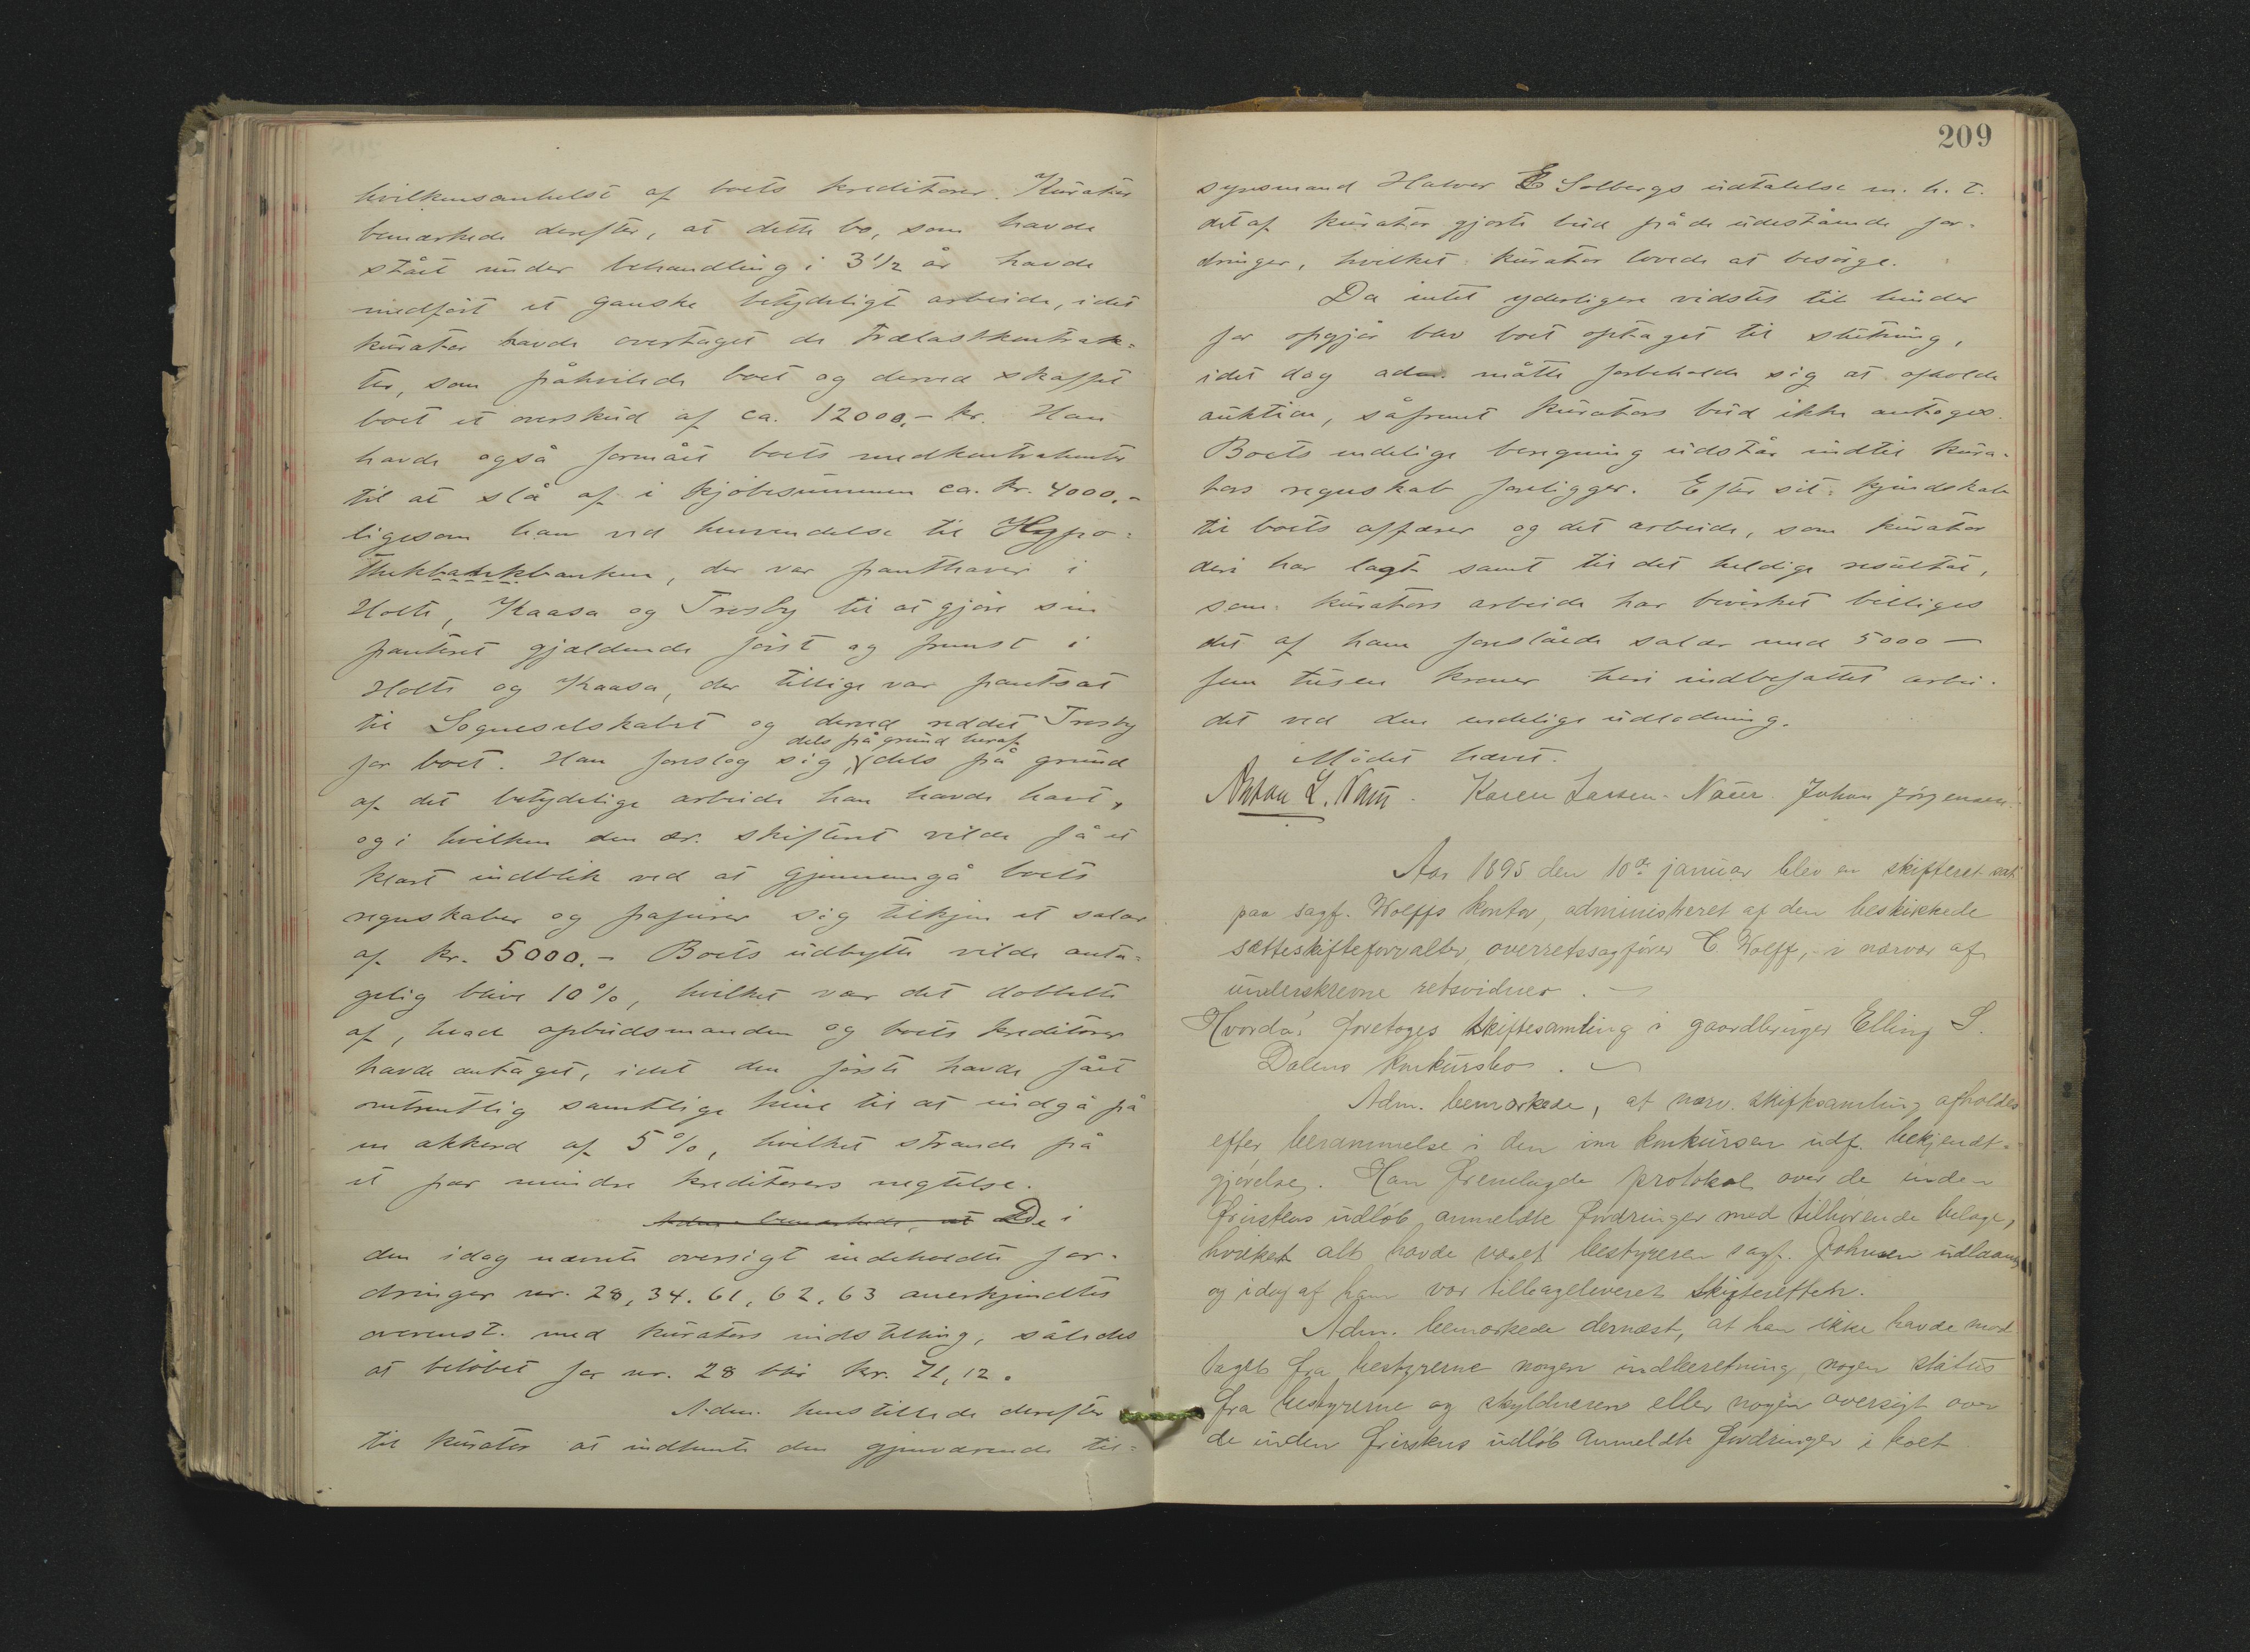 hvilkensomhelst af boets kreditorer. Kurator
bemærkede derefter, at dette bo, som havde
stået under behandling i 3 1/2 år havde
medført et ganske betydeligt arbeide, idet
kurator havde overtaget de Trælastkontrak=
ter, som påhvilede boet og derved skaffet
boet et overskud af ca. 12000,- kr. Han
havde også formået boets medkontrahenter
til at slå af i kjøbesummen ca. kr. 4000.-
ligesom han ved henvendelse til Hypo=
thekbankbanken, der var panthaver i
Holte, Kaasa og Trosby til at gjøre sin
panteret gjældende først og fremst i
Holte og Kaasa, der tillige var pantsat
til Sogneselskabet og derved reddet Trosby
dels på grund heraf
for boet. Han foreslog sig, dels på grund
af det betydelige arbeide han havde havt,
og i hvilken den ær. skifteret vilde få et
klart indblik ved at gjennemgå boets
regnskaber og papirer sig tilkjen et salær
af kr. 5000.- Boets udbytte vilde anta=
gelig blive 10 %, hvilket var det dobbelte
af, hvad opbudsmanden og boets kreditorer
havde antaget, idet den første havde fået
omtrentlig samtlige hine til at indgå på
en akkord af 5 %, hvilket strande på
et par mindre kreditorers negtelse.
Adm. bemærkede, at De i
den idag nævnte oversigt indeholdte for-
dringer nr. 28, 34, 61, 62, 63 anerkjendtes
overenst. med kurators indstilling, således
at beløbet for nr. 28 blir kr. 71,12.
Adm. henstillede derefter
til kurator at indhente den gjenværende til=
209
synsmand Halvor E Solbergs udtalelse m. h. t.
det af kurator gjorte bud på de udestående for-
dringer, hvilket kurator lovede at besørge.
Da intet yderligere vidstes til hinder
for opgjør blev boet optaget til slutning,
idet dog adm. måtte forbeholde sig at afholde
auktion, såfremt kurators bud ikke antoges.
Boets endelige beregning udstår indtil kura-
tors regnskab foreligger. Efter sit kjendskab
til boets affærer og det arbeide, som kurator
deri har lagt samt til det heldige resultat,
som kurators arbeide har bevirket billiges
det af ham foreslåede salær med 5000 —
fem tusen kroner heri indbefattet arbei-
det ved den endelige udlodning.
Mødet hævet.
L. Nau. Karen Larsen-Nauer. Johan Jørgensen.
Aar 1895 den 10de januar blev en skifteret sat
paa sagf. Wolffs kontor, administreret af den beskikkede
sætteskifteforvalter, overretssagfører C. Wolff, i nærvær af
underskrevne retsvidner.
Hvorda! foretoges skiftesamling i gaardbruger Elling S.
Dalens konkursbo.
Adm. bemærkede, at nærv. skiftesamling afholdes
efter berammelse i den om konkursen udf. bekjendt=
gjørelse. Han fremlagde protokol over de inden
fristens udløb anmeldte fordringer med tilhørende bilage,
hvilket alt havde været bestyreren sagf. Johnsen udlaant
og idag af ham var tilbageleveret skifteretten.
Adm. bemærkede dernæst, at han ikke havde mod
taget fra bestyrerne nogen indberetning, nogen status
fra bestyrerne og skyldneren eller nogen oversigt over
de inden fristens udløb anmeldte fordringer i boet